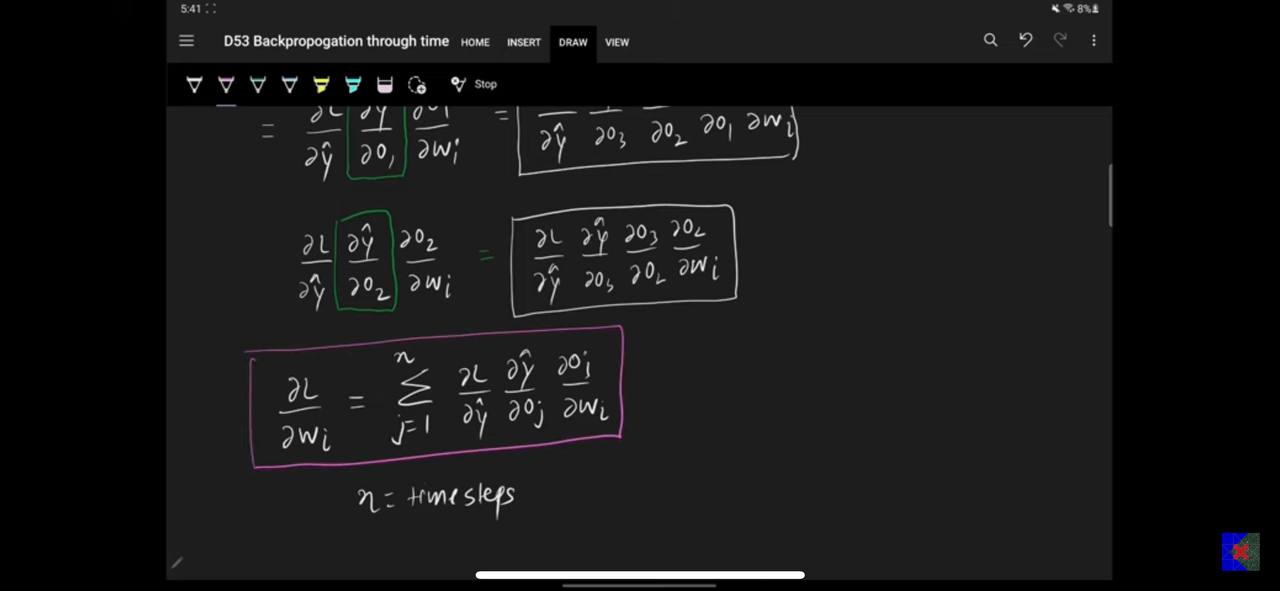 5:41
8%
D53 Backpropogation through time HOME INSERT DRAW VIEW
Stop
= ∂L/∂ŷ ∂ŷ/∂O₁ ∂O₁/∂Wi = ∂ŷ ∂O₃ ∂O₂ ∂O₁ ∂Wi
∂L/∂ŷ ∂ŷ/∂O₂ ∂O₂/∂Wi = ∂L/∂ŷ ∂ŷ/∂O₃ ∂O₃/∂O₂ ∂O₂/∂Wi
∂L/∂Wi = Σ j=1 n ∂L/∂ŷ ∂ŷ/∂Oj ∂Oj/∂Wi
n = timesteps